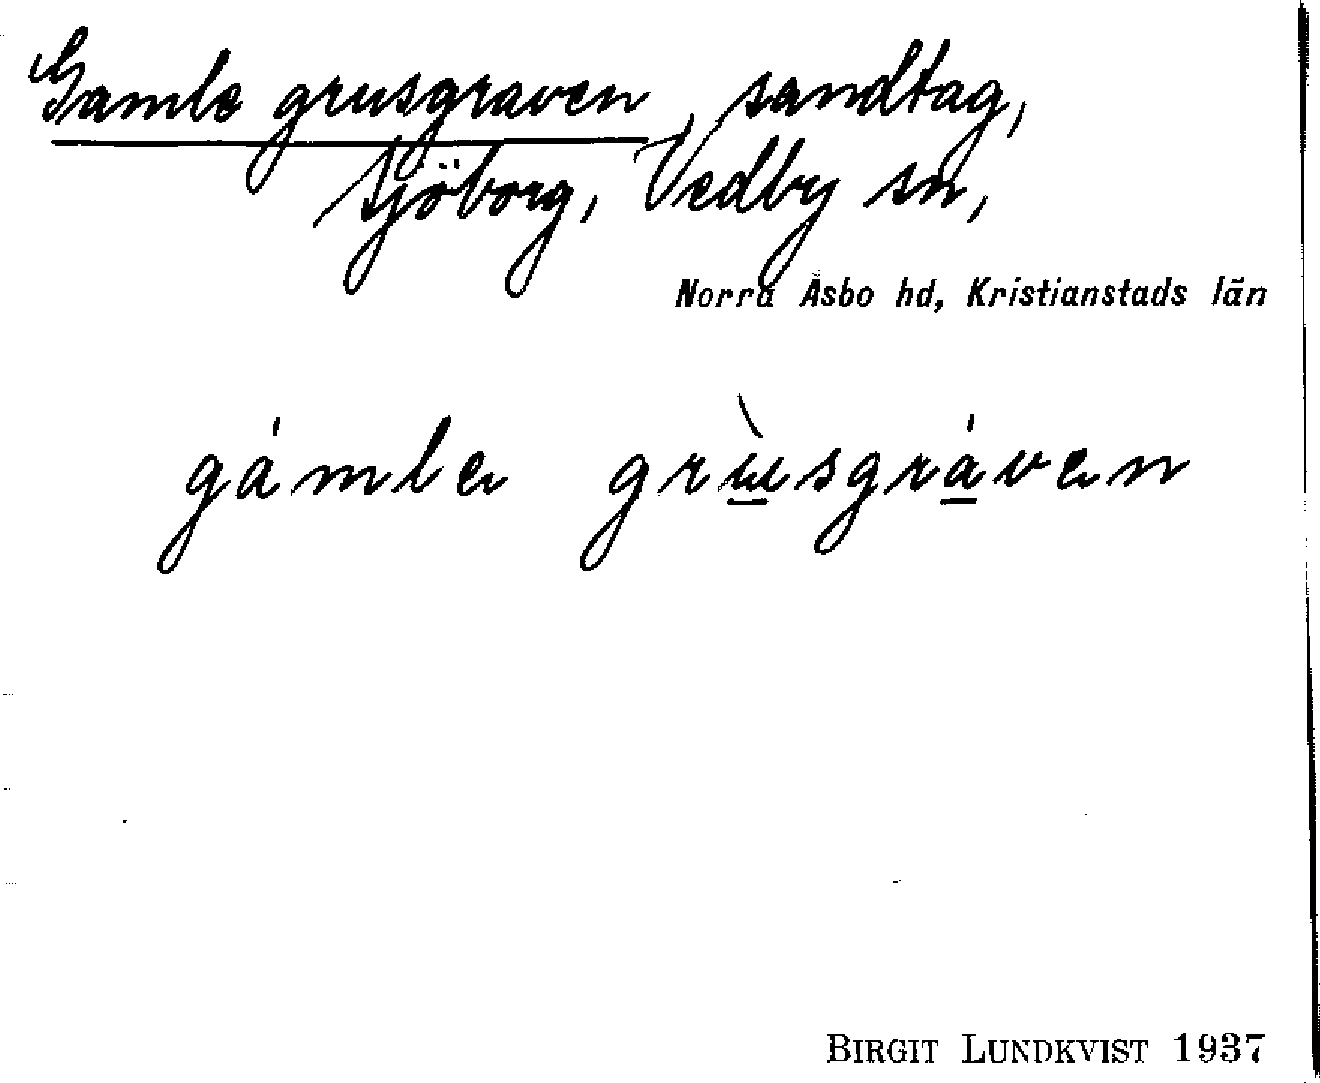 Gamle grusgraven, sandtag,
Sjöborg, Vedby sn,
Norra Åsbo hd, Kristianstads län
gámle grùsgráven
BIRGIT LUNDKVIST 1937